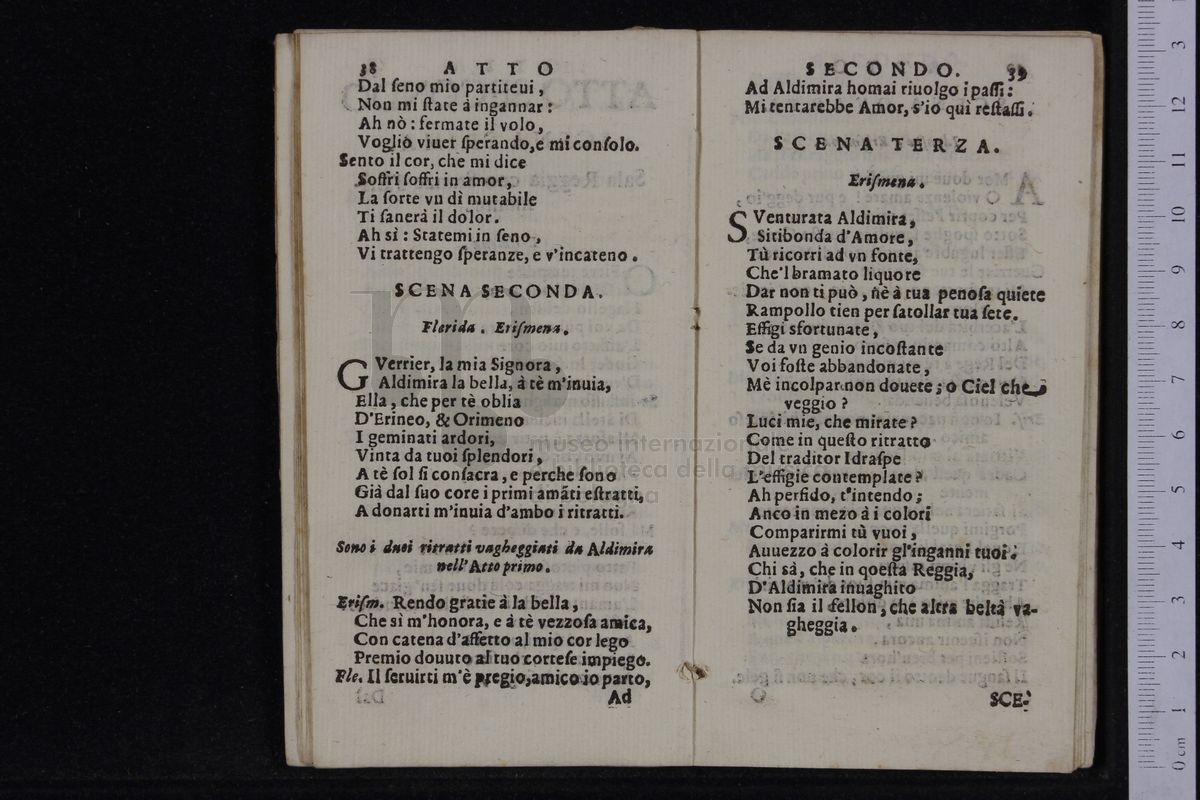 38 ATTO
Dal ſeno mio partiteui,
Non mi ſtate à ingannar:
Ah nò: fermate il volo,
Voglio viuer ſperando, e mi conſolo.
Sento il cor, che mi dice
Soffri ſoffri in amor,
La ſorte vn dì mutabile
Ti ſanerà il dolor.
Ah sì: Statemi in ſeno,
Vi trattengo ſperanze, e v'incateno.
SCENA SECONDA.
Flerida. Eriſmena.
GVerrier, la mia Signora,
Aldimira la bella, à tè m'inuia,
Ella, che per tè oblia
D'Erineo, & Orimeno
I geminati ardori,
Vinta da tuoi ſplendori,
A tè ſol ſi conſacra, e perche ſono
Già dal ſuo core i primi amãti eſtratti,
A donarti m'inuia d'ambo i ritratti.
Sono i duoi ritratti vagheggiati da Aldimira
nell'Atto primo.
Eriſm. Rendo gratie à la bella,
Che sì m'honora, e à tè vezzoſa amica,
Con catena d'affetto al mio cor lego
Premio douuto al tuo corteſe impiego.
Fle. Il ſeruirti m'è pregio, amico io parto,
Ad
SECONDO. 39
Ad Aldimira homai riuolgo i paſſi:
Mi tentarebbe Amor, s'io qui reſtaſſi.
SCENA TERZA.
Eriſmena.
SVenturata Aldimira,
Sitibonda d'Amore,
Tù ricorri ad vn fonte,
Che'l bramato liquore
Dar non ti può, nè à tua penoſa quiete
Rampollo tien per ſatollar tua ſete.
Effigi sfortunate,
Se da vn genio incoſtante
Voi foſte abbandonate,
Mè incolpar non douete; o Ciel che
veggio?
Luci mie, che mirate?
Come in queſto ritratto
Del traditor Idraſpe
L'effigie contemplate?
Ah perfido, t'intendo;
Anco in mezo à i colori
Comparirmi tù vuoi,
Auuezzo à colorir gl'inganni tuoi.
Chi sà, che in qoeſta Reggia,
D'Aldimira inuaghito
Non ſia il fellon, che altra beltà va-
gheggia.
SCE-